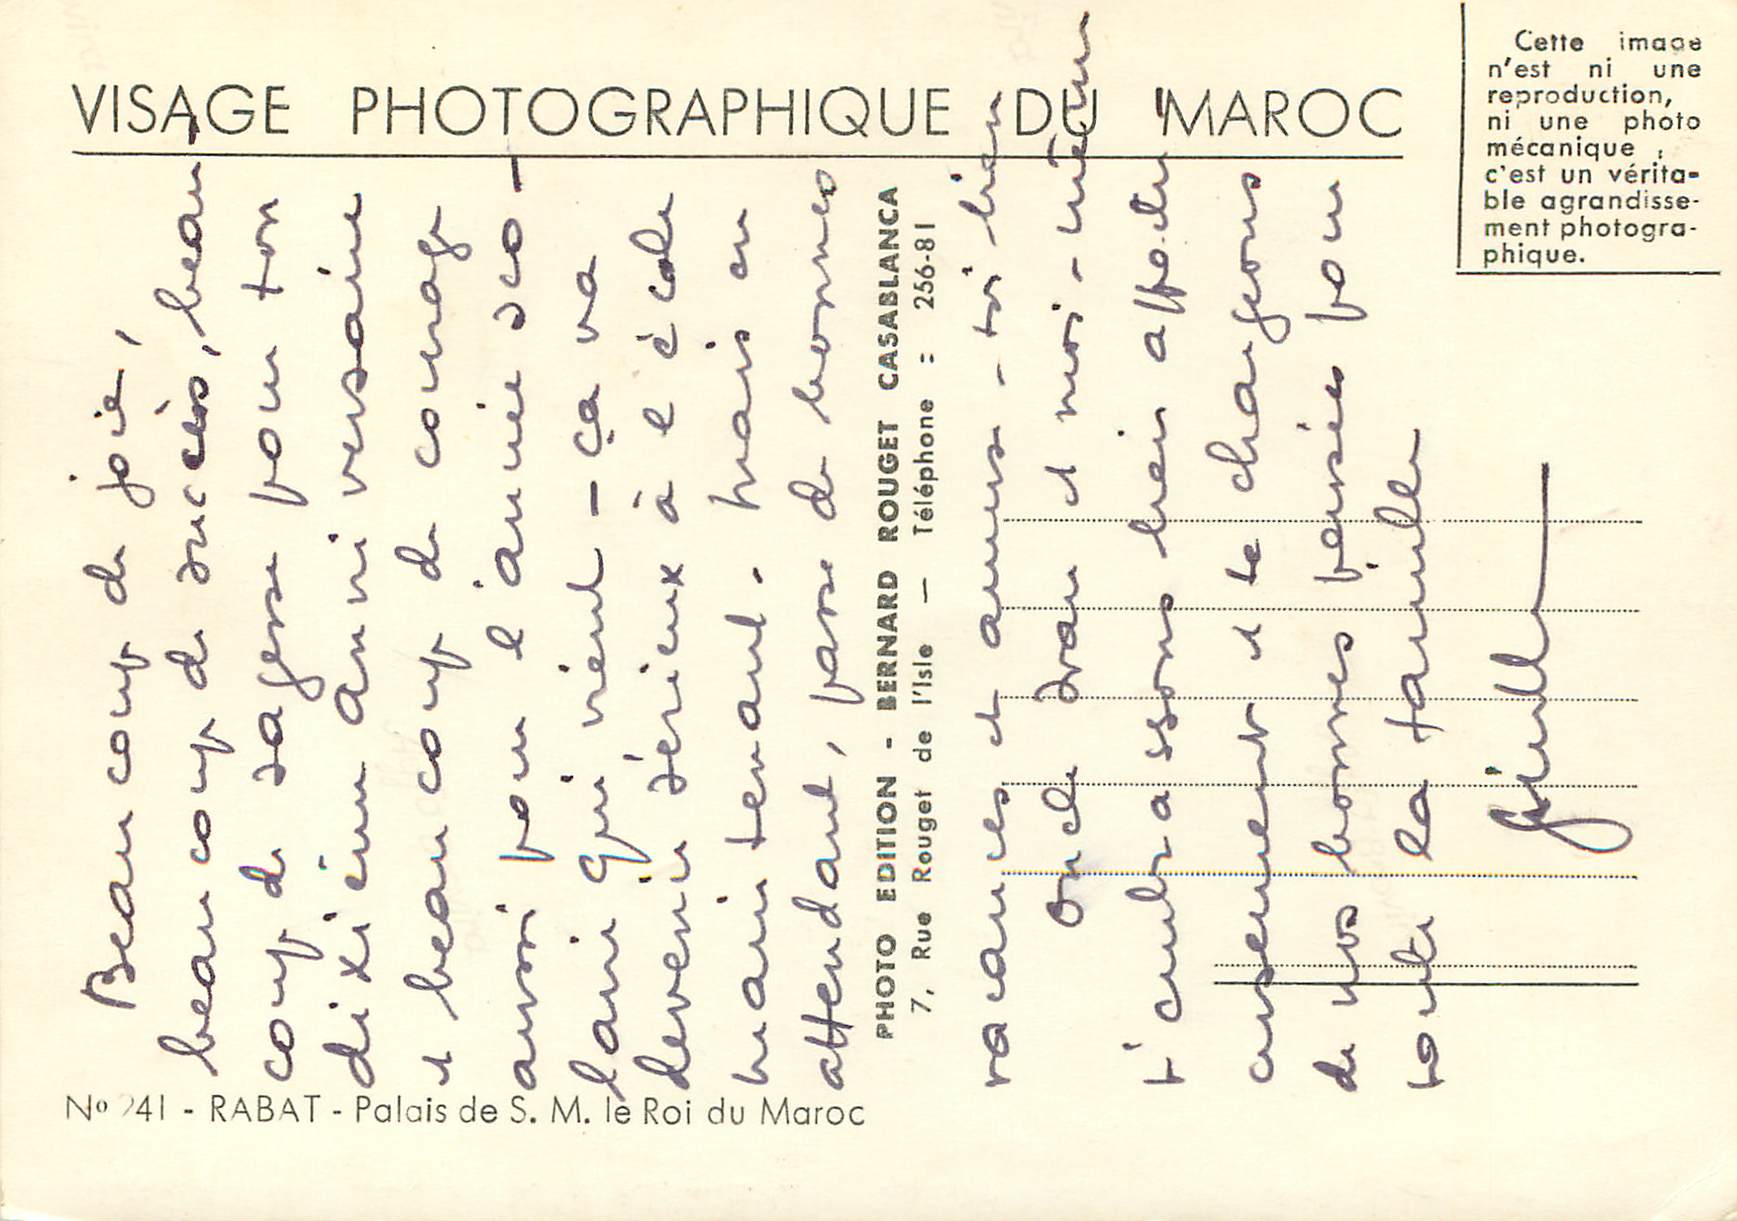 VISAGE PHOTOGRAPHIQUE DU MAROC
Cette image
n'est ni une
reproduction,
ni une photo
mécanique ;
c'est un vérita-
ble agrandisse-
ment photogra-
phique.
Beaucoup de joie,
beaucoup de succès, beau
coup de sagesse pour ton
dixième anniversaire
et beaucoup de courage
aussi pour l'année sco-
laire qui vient - ça va
devenir sérieux à l'école
maintenant. Mais en
attendant, passe de bonnes
PHOTO EDITION - BERNARD ROUGET CASABLANCA
7, Rue Rouget de l'Isle — Téléphone : 256-81
vacances et amuse-toi bien
Oncle Jean et moi-même
t'embrassons bien affectu
eusement et te chargeons
de nos bonnes pensées pour
toute la famille
N° 241 - RABAT - Palais de S. M. le Roi du Maroc